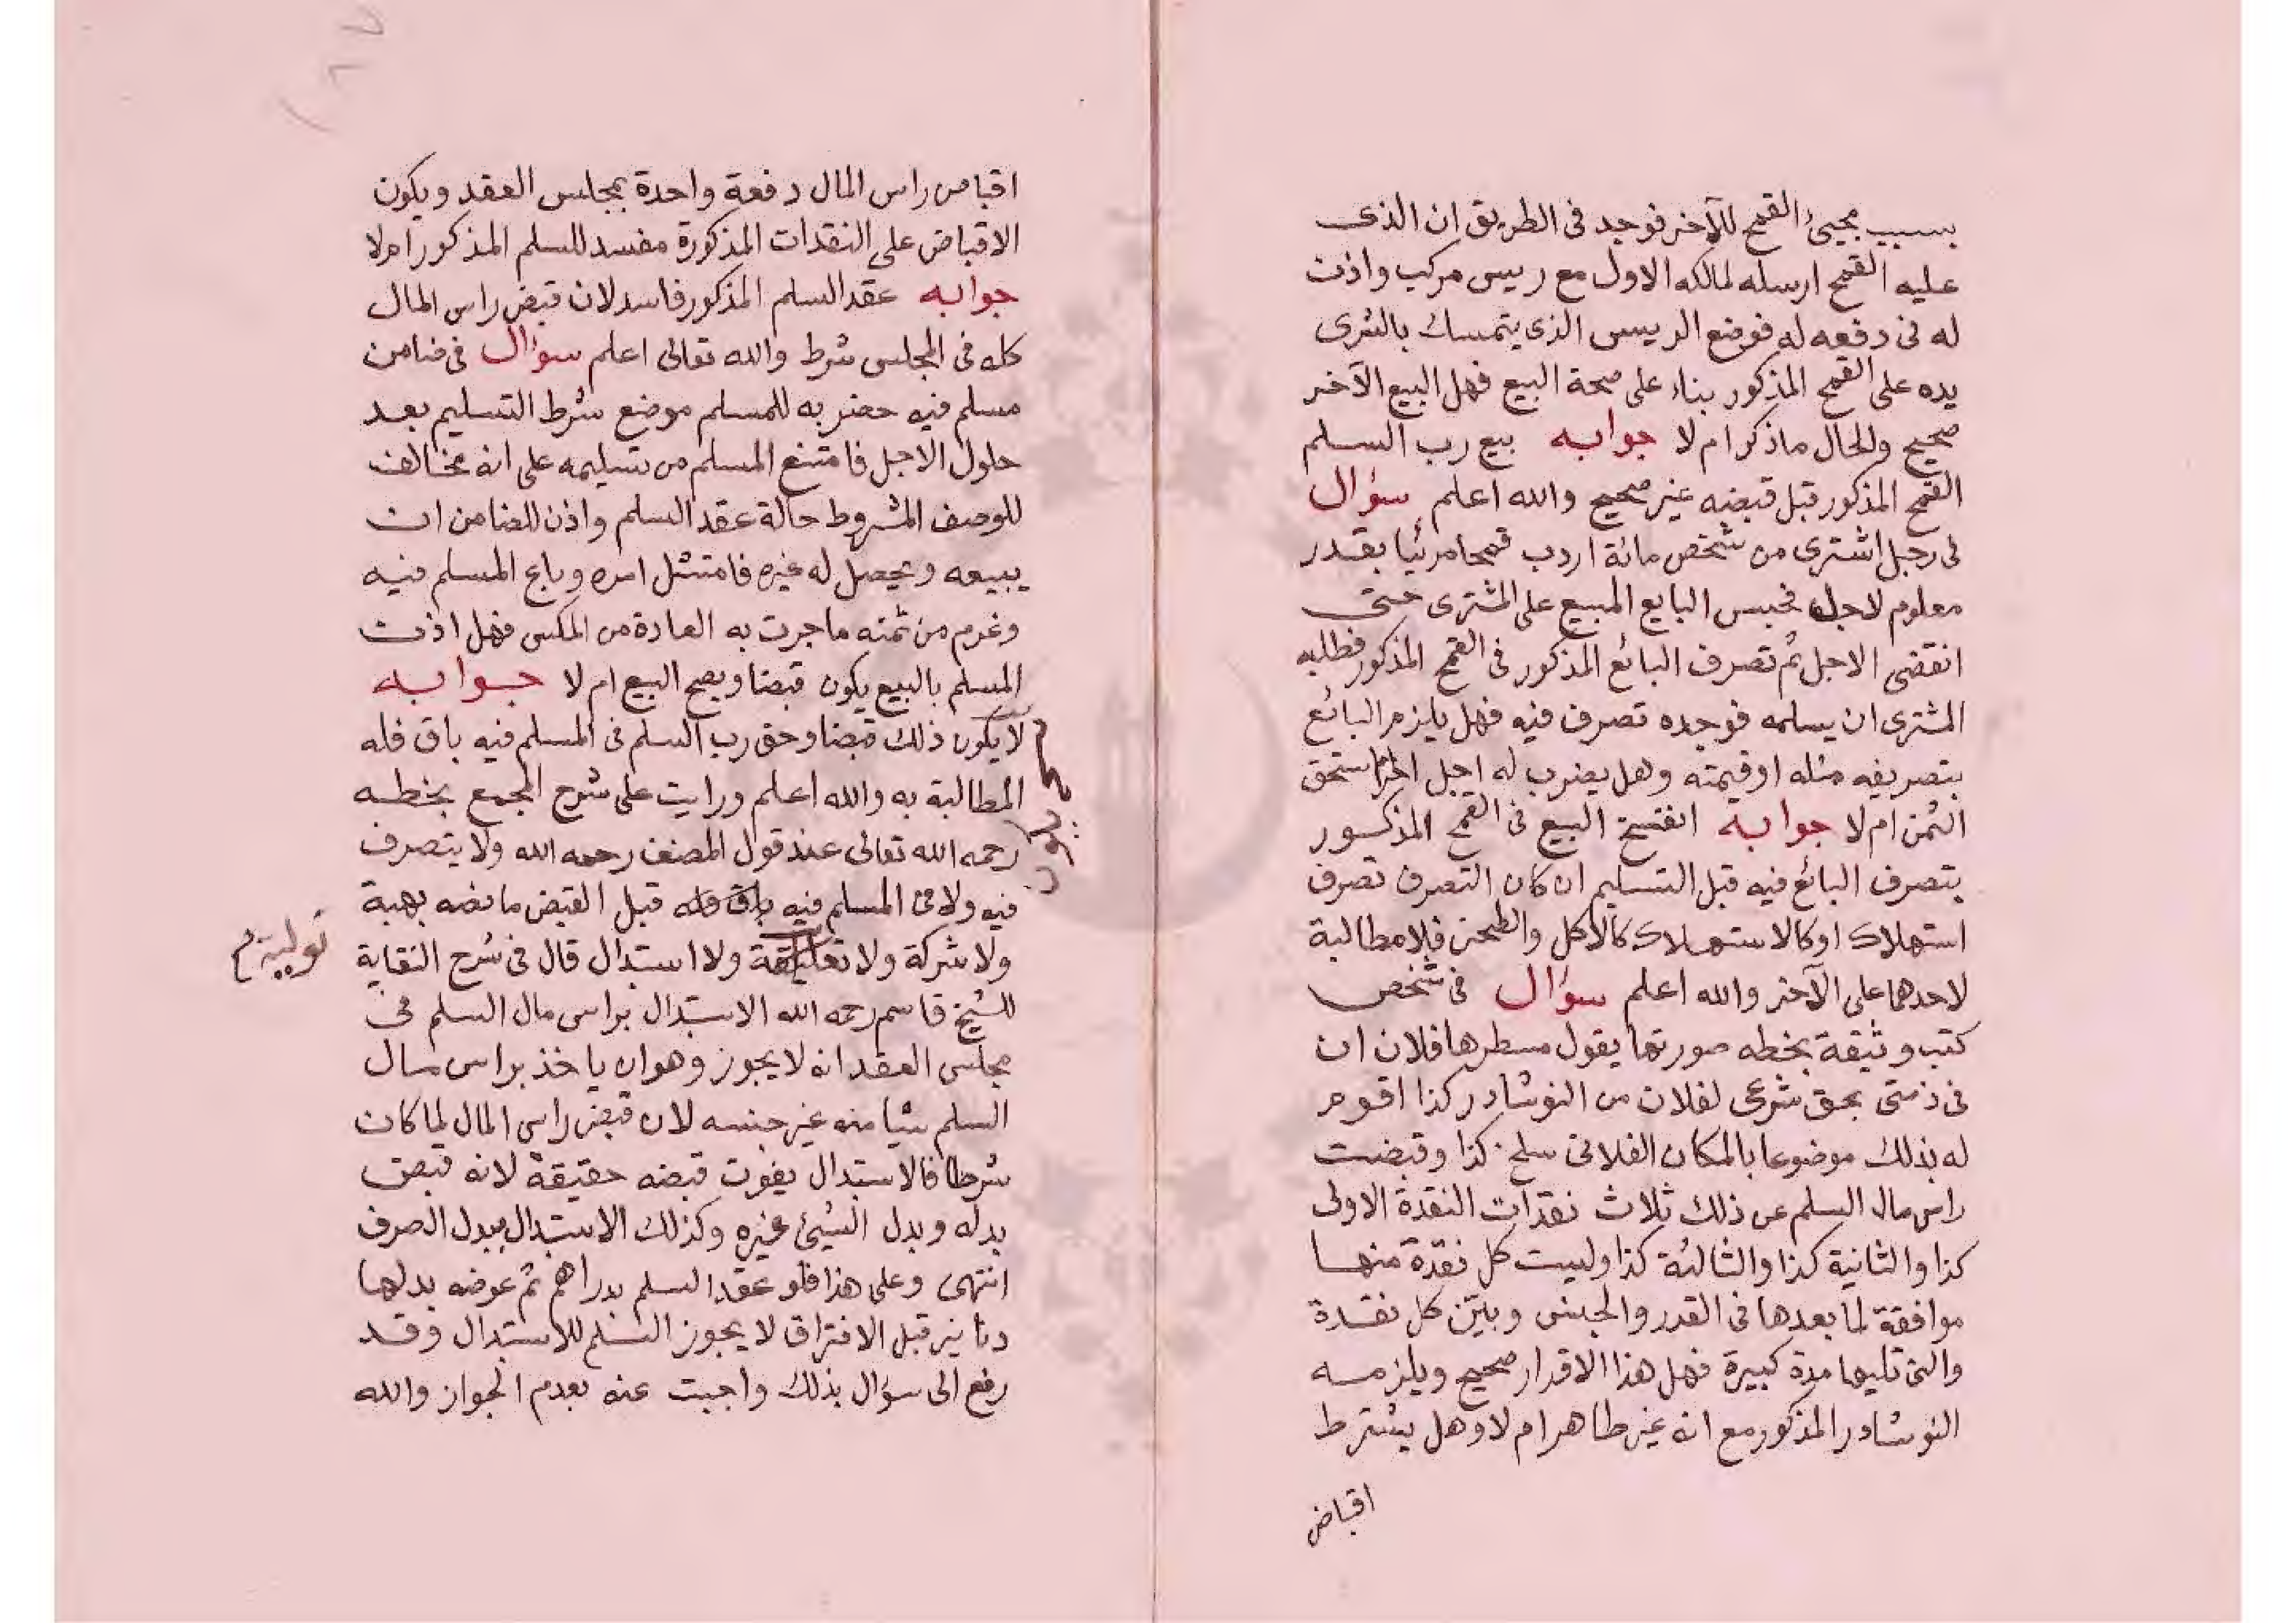 بسبب مجيئ القمح للآخر فوجد فى الطريق ان الذى
عليه القمح ارسله لمالكه الاول مع ريس مركب واذن
له فى دفعه له فوضع الريس الذى يتمسك بالشرى
يده على القمح المذكور بناء على صحة البيع فهل البيع الآخر
صحيح والحال ماذكر ام لا جوابه بيع رب السلم
القمح المذكور قبل قبضه غير صحيح والله اعلم سؤال
فى رجل اشترى من شخص مائة اردب قمحا مرئيا بقدر
معلوم لاجل فحبس البايع المبيع على المشترى حتى
انقضى الاجل ثم تصرف البائع المذكور فى القمح المذكور فطلبه
المشترى ان يسلمه فوجده تصرف فيه فهل يلزم البائع
بتصريفه مثله او قيمته وهل يضرب له اجل استحق
الثمن ام لا جوابه انفسخ البيع فى القمح المذكور
بتصرف البائع فيه قبل التسليم ان كان التصرف تصرف
استهلاك او كالاستهلاك كالاكل والطحن فلا مطالبة
لاحدهما على الآخر والله اعلم سؤال فى شخص
كتب وثيقة بخطه صورتها يقول مسطرها فلان ان
فى ذمتى بحق شرعى لفلان من النوشادر كذا اقوم
له بذلك موضوعا بالمكان الفلانى سلخ كذا وقبضت
راس مال السلم عن ذلك ثلاث نقدات النقدة الاولى
كذا والثانية كذا والثالثة كذا وليست كل نقدة منها
موافقة لما بعدها فى القدر والجنس وبين كل نقدة
والتى تليها مدة كبيرة فهل هذا الاقرار صحيح ويلزمه
النوشادر المذكور مع انه غير طاهر ام لا وهل يشترط
اقباض
اقباص راس المال دفعة واحدة بمجلس العقد ويكون
الاقباض على النقدات المذكورة مفسد للسلم المذكور ام لا
جوابه عقد السلم المذكور فاسد لان قبض راس المال
كله فى المجلس شرط والله تعالى اعلم سؤال فى ضامن
مسلم فيه حضر به للمسلم موضع شرط التسليم بعد
حلول الاجل فامتنع المسلم من تسليمه على انه مخالف
للوصف المشروط حالة عقد السلم واذن للضامن ان
يبيعه ويحصل له غيره فامتثل امره وباع المسلم فيه
وغرم من ثمنه ما جرت به العادة من المكس فهل اذن
المسلم بالبيع يكون قبضا ويصح البيع ام لا جوابه
لا يكون ذلك قبضا وحق رب السلم فى المسلم فيه باق فله
المطالبة به والله اعلم ورايت على شرح المجمع بخطه
رحمه الله تعالى عند قول المصنف رحمه الله ولا يتصرف
فيه ولا فى المسلم فيه باق فله قبل القبض ما نصه بهبة
ولا شركة ولا ولا استبدال قال فى شرح النقاية
تولية م
للشيخ قاسم رحمه الله الاستبدال براس مال السلم فى
مجلس العقد انه لا يجوز وهو ان ياخذ براس مال
السلم شيا منه غير جنسه لان قبض راس المال لما كان
شرطا فالاستبدال يفوت قبضه حقيقة لانه قبض
بدله وبدل الشيئ غيره وكذلك الاستبدال ببدل الصرف
انتهى وعلى هذا فلو عقد السلم بدراهم ثم عوضه بدلها
دنانير قبل الافتراق لا يجوز السلم للاستبدال وقد
رفع الى سؤال بذلك واجبت عنه بعدم الجواز والله